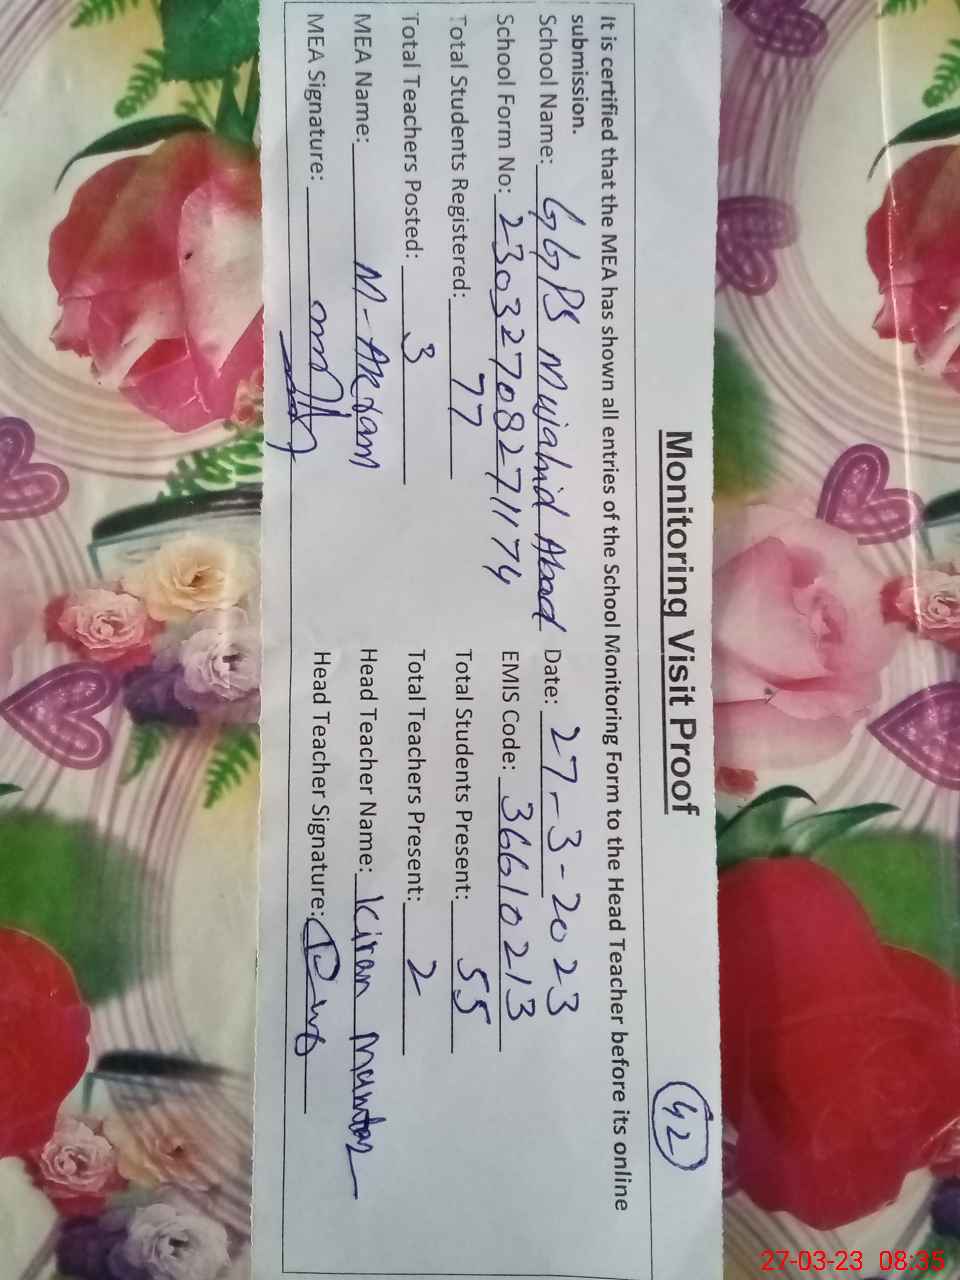 Monitoring Visit Proof
42
It is certified that the MEA has shown all entries of the School Monitoring Form to the Head Teacher before its online
submission.
School Name: GGPS Mujahid Abad Date: 27-3-2023
School Form No: 230327082711174 EMIS Code: 36610213
Total Students Registered: 77 Total Students Present: 55
Total Teachers Posted: 3 Total Teachers Present: 2
MEA Name: M-Akram Head Teacher Name: Kiran Mumtaz
MEA Signature: Head Teacher Signature:
27-03-23 08:35